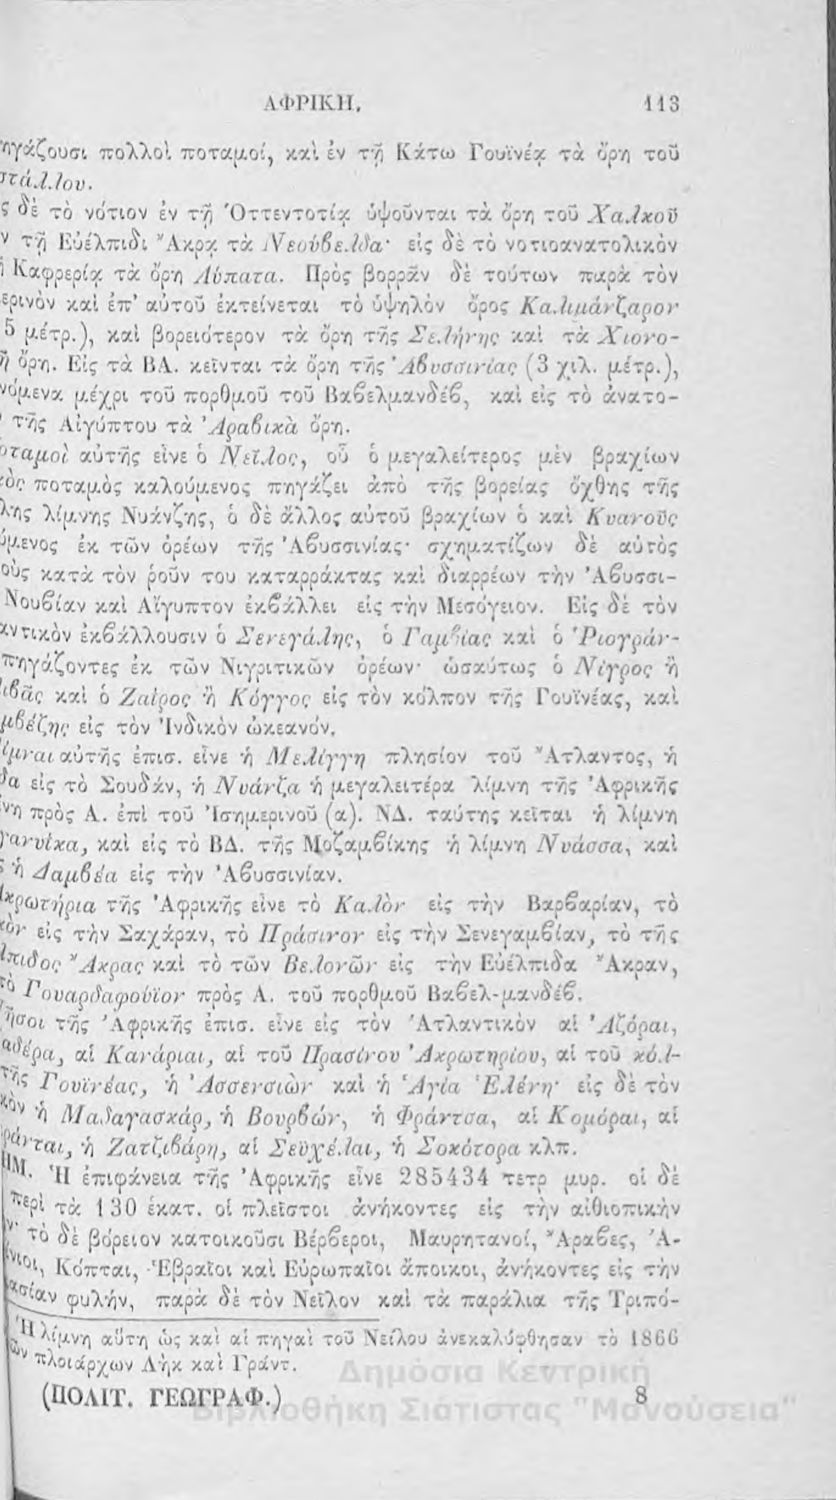 ΑΦΡΙΚΗ. 113
πολλοὶ ποταμοί, καὶ ἐν τῇ Κάτω Γουϊνέᾳ τὰ ὄρη τοῦ
δὲ τὸ νότιον ἐν τῇ Ὀττεντοτίᾳ ὑψοῦνται τὰ ὄρη τοῦ Χαλκοῦ
τῇ Εὐέλπιδι Ἄκρᾳ τὰ Νεούβελδα· εἰς δὲ τὸ νοτιοανατολικὸν
Καφρερίᾳ τὰ ὄρη Λύπατα. Πρὸς βορρᾶν δὲ τούτων παρὰ τὸν
καὶ ἐπ' αὐτοῦ ἐκτείνεται τὸ ὑψηλὸν ὄρος Καλιμάνζαρον
5 μέτρ.), καὶ βορειότερον τὰ ὄρη τῆς Σελήνης καὶ τὰ Χιονο-
ὄρη. Εἰς τὰ ΒΑ. κεῖνται τὰ ὄρη τῆς Ἀβυσσινίας (3 χιλ. μέτρ.),
μέχρι τοῦ πορθμοῦ τοῦ Βαβελμανδέβ, καὶ εἰς τὸ ἀνατο-
τῆς Αἰγύπτου τὰ Ἀραβικὰ ὄρη.
αὐτῆς εἶνε ὁ Νεῖλος, οὗ ὁ μεγαλείτερος μὲν βραχίων
ποταμὸς καλούμενος πηγάζει ἀπὸ τῆς βορείας ὄχθης τῆς
λίμνης Νυάνζης, ὁ δὲ ἄλλος αὐτοῦ βραχίων ὁ καὶ Κυανοῦς
ἐκ τῶν ὀρέων τῆς Ἀβυσσινίας· σχηματίζων δὲ αὐτὸς
κατὰ τὸν ῥοῦν του καταρράκτας καὶ διαρρέων τὴν Ἀβυσσι-
Νουβίαν καὶ Αἴγυπτον ἐκβάλλει εἰς τὴν Μεσόγειον. Εἰς δὲ τὸν
ἐκβάλλουσιν ὁ Σενεγάλης, ὁ Γαμβίας καὶ ὁ Ῥιογράν-
πηγάζοντες ἐκ τῶν Νιγριτικῶν ὀρέων· ὡσαύτως ὁ Νίγρος ἢ
καὶ ὁ Ζαΐρος ἢ Κόγγος εἰς τὸν κόλπον τῆς Γουϊνέας, καὶ
εἰς τὸν Ἰνδικὸν ὠκεανόν.
αὐτῆς ἐπισ. εἶνε ἡ Μελίγγη πλησίον τοῦ Ἄτλαντος, ἡ
εἰς τὸ Σουδάν, ἡ Νυάνζα ἡ μεγαλειτέρα λίμνη τῆς Ἀφρικῆς
πρὸς Α. ἐπὶ τοῦ Ἰσημερινοῦ (α). ΝΔ. ταύτης κεῖται ἡ λίμνη
καὶ εἰς τὸ ΒΔ. τῆς Μοζαμβίκης ἡ λίμνη Νυάσσα, καὶ
ἡ Δαμβέα εἰς τὴν Ἀβυσσινίαν.
τῆς Ἀφρικῆς εἶνε τὸ Καλὸν εἰς τὴν Βαρβαρίαν, τὸ
εἰς τὴν Σαχάραν, τὸ Πράσινον εἰς τὴν Σενεγαμβίαν, τὸ τῆς
Ἄκρας καὶ τὸ τῶν Βελονῶν εἰς τὴν Εὐέλπιδα Ἄκραν,
τὸ Γουαρδαφούϊον πρὸς Α. τοῦ πορθμοῦ Βαβελ-μανδέβ.
τῆς Ἀφρικῆς ἐπισ. εἶνε εἰς τὸν Ἀτλαντικὸν αἱ Ἀζόραι,
αἱ Κανάριαι, αἱ τοῦ Πρασίνου Ἀκρωτηρίου, αἱ τοῦ κόλ-
τῆς Γουϊνέας, ἡ Ἀσσενσιὼν καὶ ἡ Ἁγία Ἑλένη· εἰς δὲ τὸν
ἡ Μαδαγασκάρ, ἡ Βουρβών, ἡ Φράντσα, αἱ Κομόραι, αἱ
ἡ Ζατζιβάρη, αἱ Σεϋχέλαι, ἡ Σοκότορα κλπ.
Ἡ ἐπιφάνεια τῆς Ἀφρικῆς εἶνε 285434 τετρ μυρ. οἱ δὲ
περὶ τὰ 130 ἑκατ. οἱ πλεῖστοι ἀνήκοντες εἰς τὴν αἰθιοπικὴν
τὸ δὲ βόρειον κατοικοῦσι Βέρβεροι, Μαυρητανοί, Ἄραβες, Ἀ-
Κόπται, Ἑβραῖοι καὶ Εὐρωπαῖοι ἄποικοι, ἀνήκοντες εἰς τὴν
φυλήν, παρὰ δὲ τὸν Νεῖλον καὶ τὰ παράλια τῆς Τριπό-
Ἡ λίμνη αὕτη ὡς καὶ αἱ πηγαὶ τοῦ Νείλου ἀνεκαλύφθησαν τὸ 1866
πλοιάρχων Λὴκ καὶ Γράντ.
(ΠΟΛΙΤ. ΓΕΩΓΡΑΦ.) 8
Δημόσια Κεντρική
Βιβλιοθήκη Σιάτιστας "Μανούσεια"